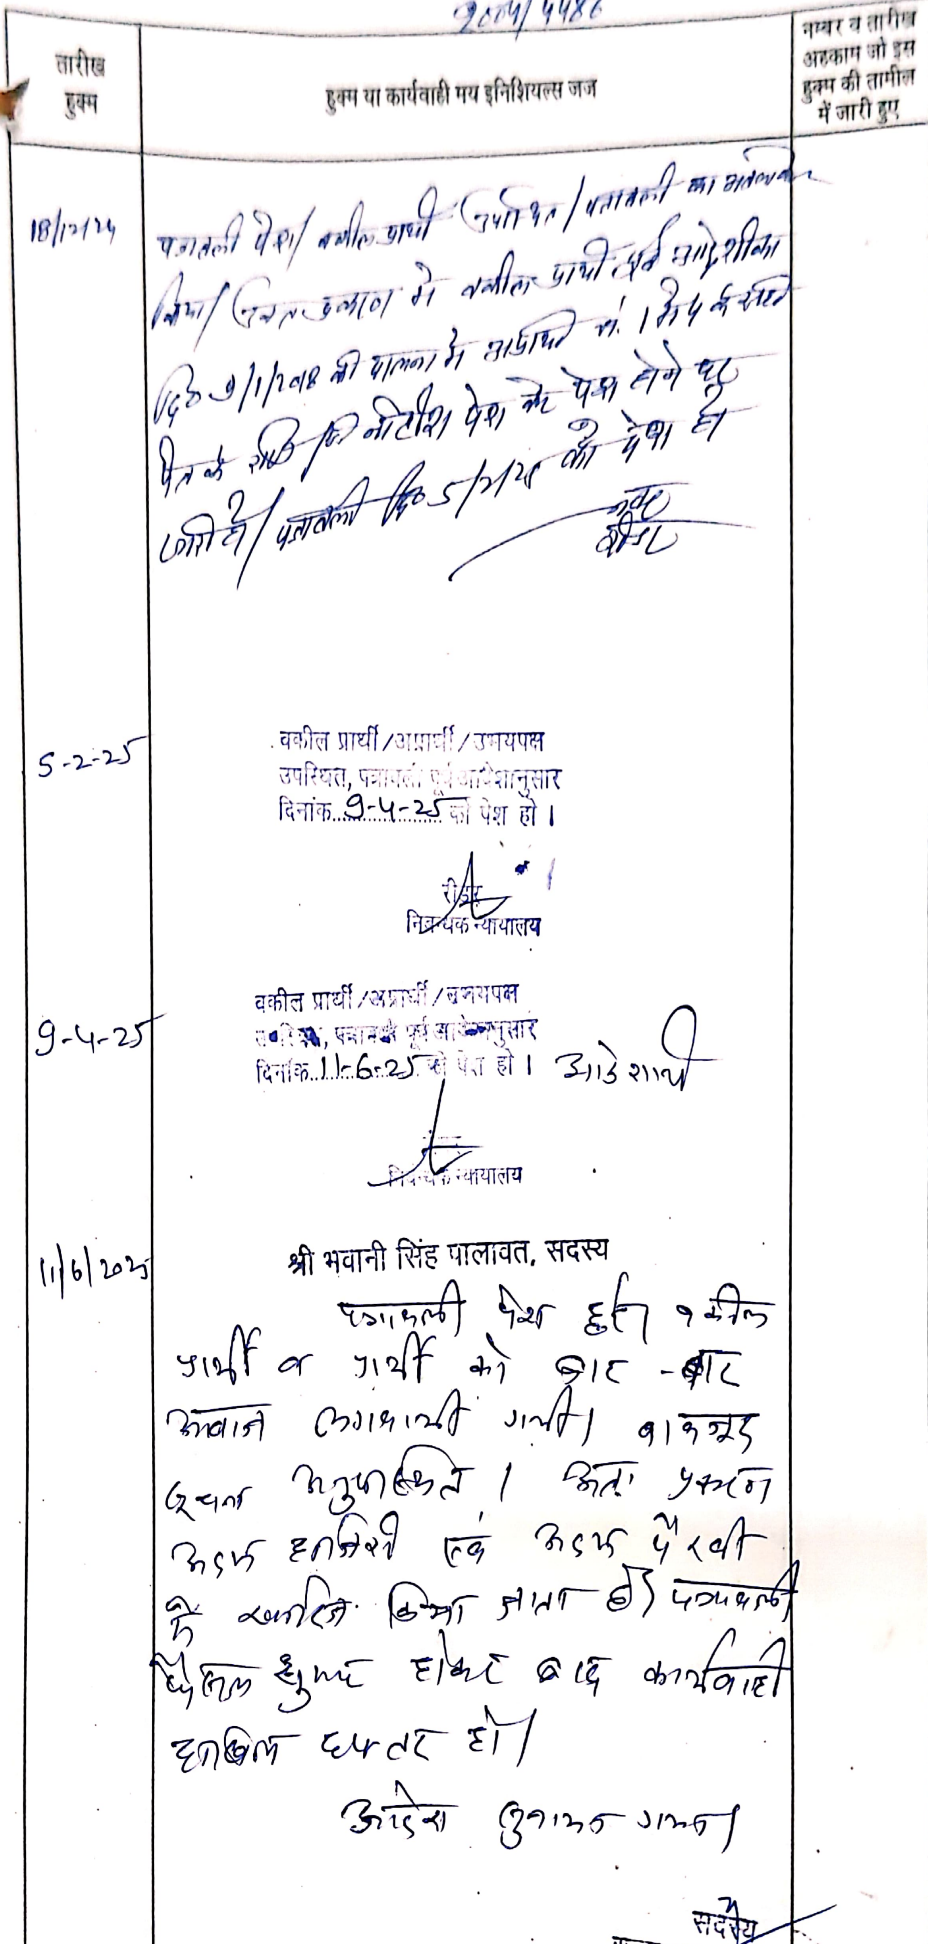 2004/4486
तारीख
हुक्म
हुक्म या कार्यवाही मय इनिशियल्स जज
नम्बर व तारीख
अहकाम जो इस
हुक्म की तामील
में जारी हुए
18/12/24
पत्रावली पेश/ वकील प्रार्थी उपस्थित/ पत्रावली का अवलोकन
किया/ प्रकरण में वकील प्रार्थी पूर्व आदेशिका
की पालना में
नोटीस पेश करे पेश होने पर
जारी हो/ पत्रावली दि० 5/2/25 को पेश हो
रीडर
5-2-25
वकील प्रार्थी/अप्रार्थी/उभयपक्ष
उपस्थित, पत्रावली पूर्व आदेशानुसार
दिनांक 9-4-25 को पेश हो ।
रीडर
निबन्धक न्यायालय
9-4-25
वकील प्रार्थी/अप्रार्थी/उभयपक्ष
उपस्थित, पत्रावली पूर्व आदेशानुसार
दिनांक 11-6-25 को पेश हो ।
निबन्धक न्यायालय
11/6/2025
श्री भवानी सिंह पालावत, सदस्य
पत्रावली पेश हुई। वकील
प्रार्थी व प्रार्थी को बार-बार
आवाज लगवायी गयी। बावजूद
सूचना अनुपस्थित। अतः प्रकरण
अदम हाजिरी एवं अदम पैरवी
में खारिज किया जाता है। पत्रावली
फैसल शुमार होकर बाद कार्यवाही
दाखिल दफ्तर हो।
आदेश सुनाया गया।
सदस्य